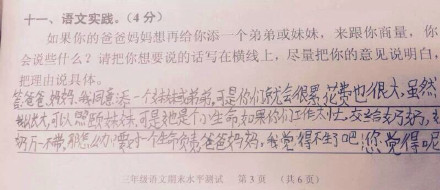 十一、语文实践。(4分)
如果你的爸爸妈妈想再给你添一个弟弟或妹妹，来跟你商量，你
会说些什么？请把你想要说的话写在横线上，尽量把你的意见说明白，
把理由说具体。
答爸爸妈妈,我同意添一个妹妹或弟弟,可是你们就会很累,花费也很大,虽然
我长大,可以照顾妹妹,可是她是个小生命,如果你们工作太忙,交给爷爷奶奶,
奶不带,那怎么办,要小个生命负责,爸爸妈妈,我觉得不生了吧,您觉得呢
三年级语文期末水平测试 第3页 (共6页)